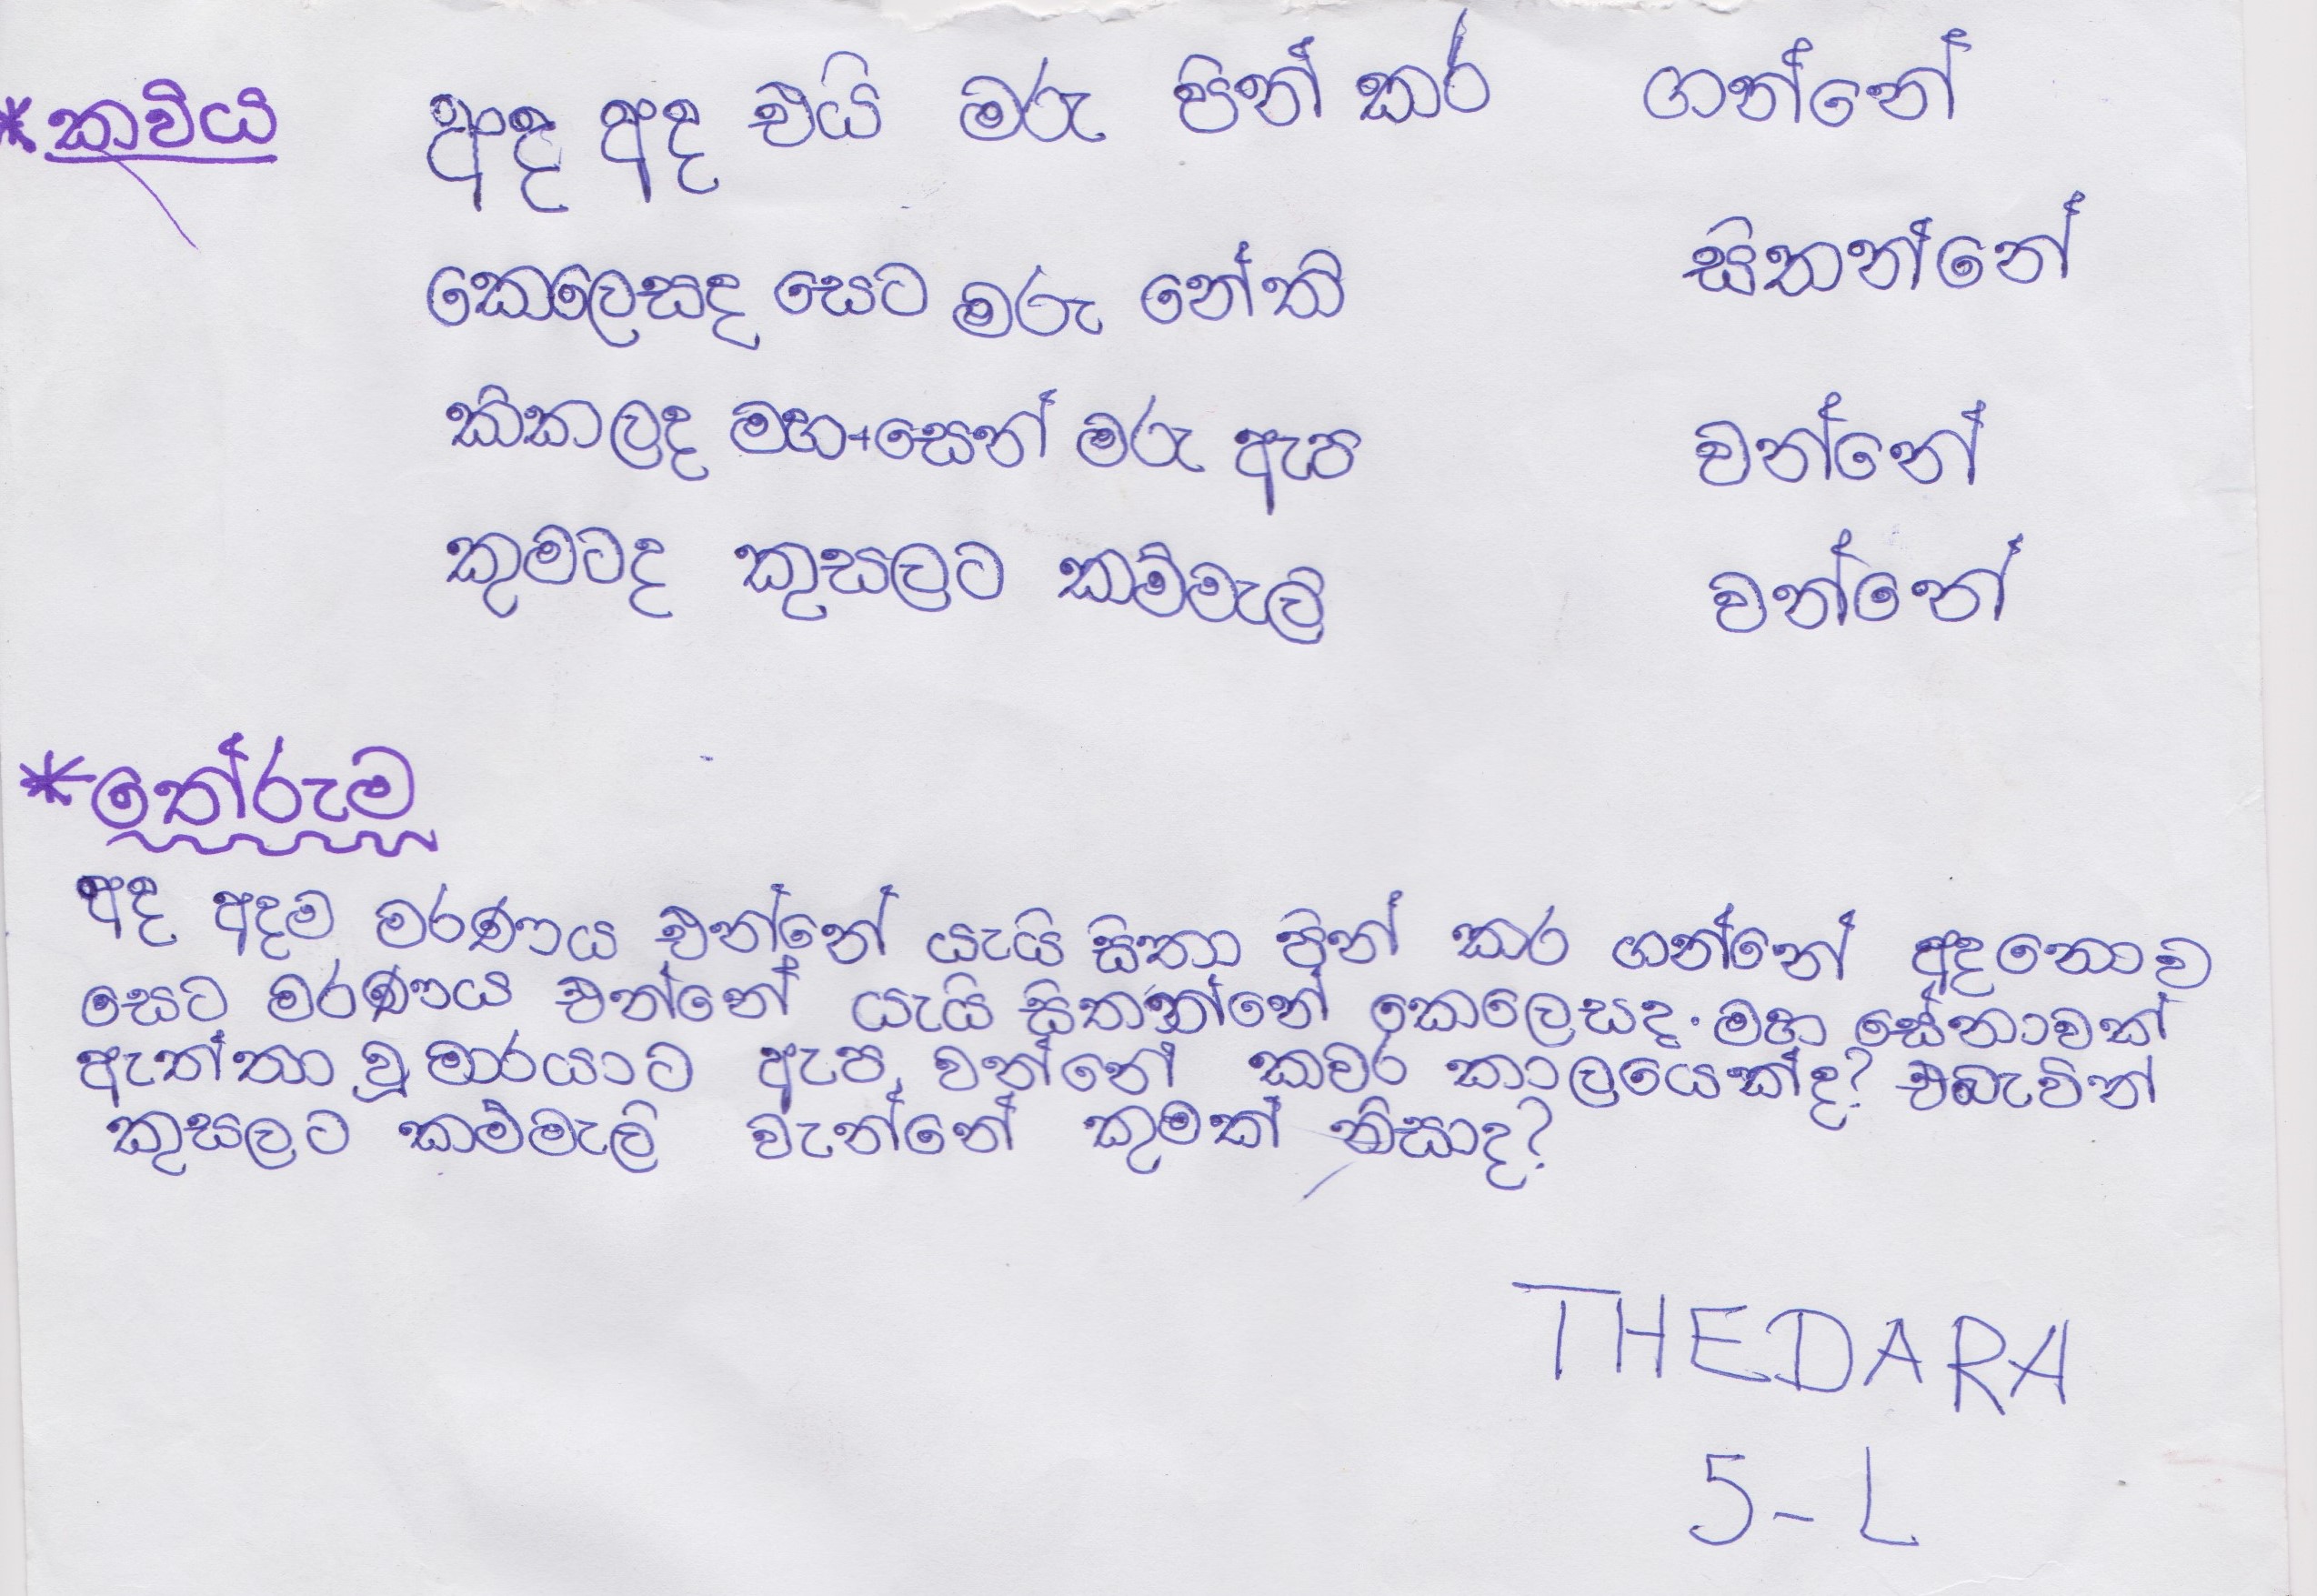 * කවිය අද අද එයි මරු පින් කර ගන්නේ
කෙලෙසද සෙට මරු නේති සිතන්නේ
කිකලද මහ සෙන් මරු ඇප වන්නේ
කුමටද කුසලට කම්මැලි වන්නේ
* තේරුම
අද අදම මරණය එන්නේ යැයි සිතා පින් කර ගන්නේ අද නොව
සෙට මරණය එන්නේ යැයි සිතන්නේ කෙලෙසද. මහා සේනාවක්
ඇත්තා වූ මාරයාට ඇප වන්නේ කවර කාලයෙක්ද? එබැවින්
කුසලට කම්මැලි වැන්නේ කුමක් නිසාද?
THEDARA
5-L